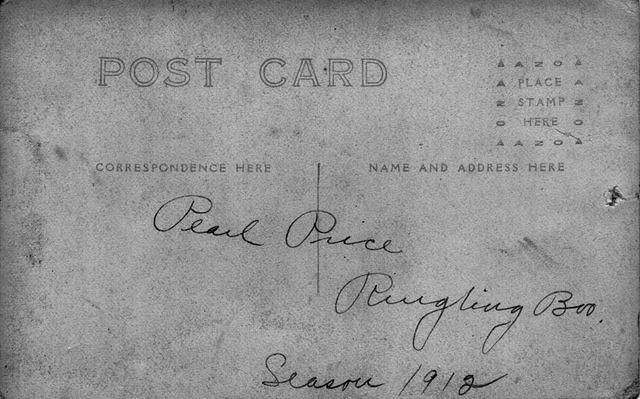 POST CARD
AAZOA
A PLACE A
N STAMP N
O HERE O
AAZOA
CORRESPONDENCE HERE
NAME AND ADDRESS HERE
Pearl Price
Ringling Bro.
Season 1912